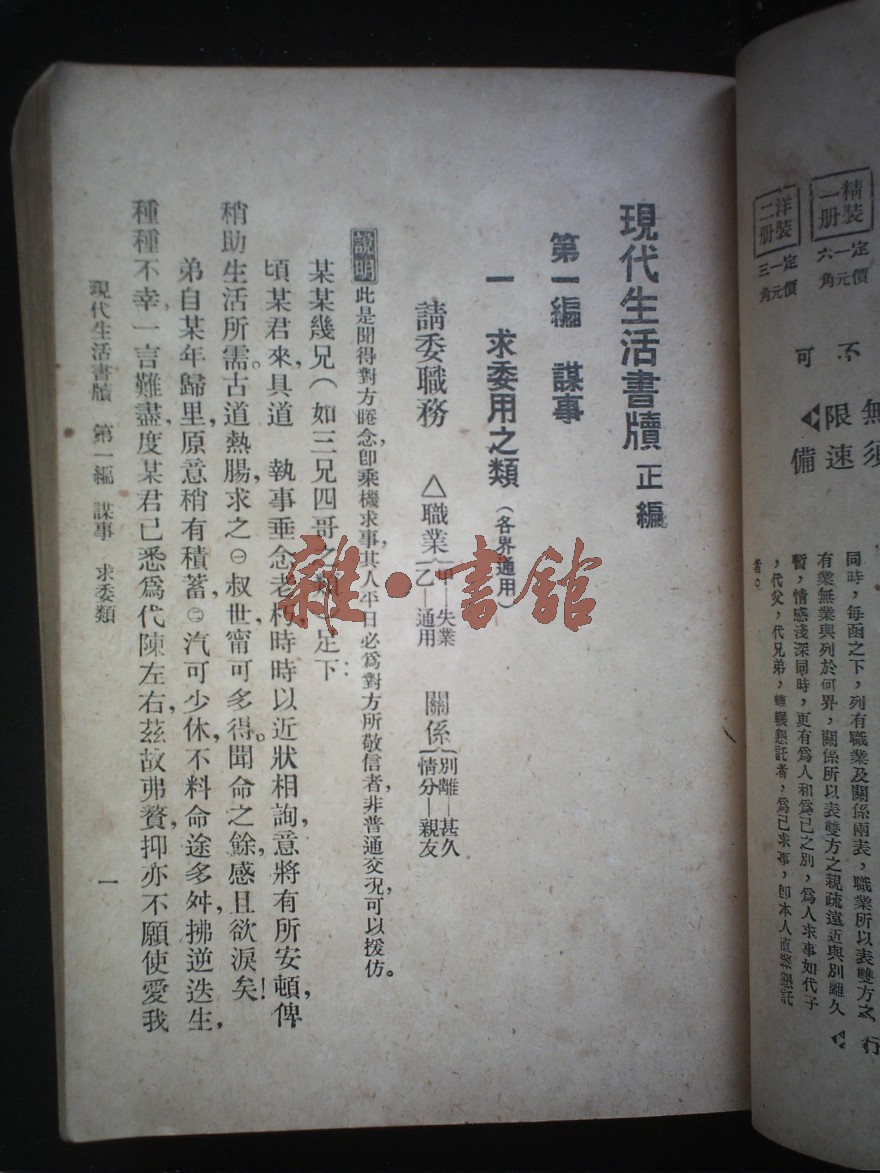 精裝一册
定價一元六角
洋裝二册
定價一元三角
不可
無須
限速
備
行
同時，每函之下，列有職業及關係兩表，職業所以表雙方之
有業無業與列於何界，關係所以表雙方之親疏遠近與別離久
暫，情感淺深同時，更有爲人和爲己之別，爲人求事如代子
，代父，代兄弟，輾轉懇託者，爲己求事，卽本人直接懇託
者。
現代生活書牘 正編
第一編 謀事
一 求委用之類（各界通用）
請委職務 △職業 甲—失業 乙—通用 關係 別離—甚久 情分—親友
說明 此是聞得對方睠念，卽乘機求事，其人平日必爲對方所敬信者，非普通交況，可以援仿。
某某幾兄（如三兄四哥之類）足下：
頃某君來，具道 執事垂念老朽，時時以近狀相詢，意將有所安頓，俾
稍助生活所需。古道熱腸，求之㊀叔世，甯可多得。聞命之餘，感且欲淚矣！
弟自某年歸里，原意稍有積蓄，㊁汽可少休，不料命途多舛，拂逆迭生，
種種不幸，一言難盡，度某君已悉爲代陳左右，茲故弗贅，抑亦不願使愛我
現代生活書牘 第一編 謀事 求委類
一
雜·書館